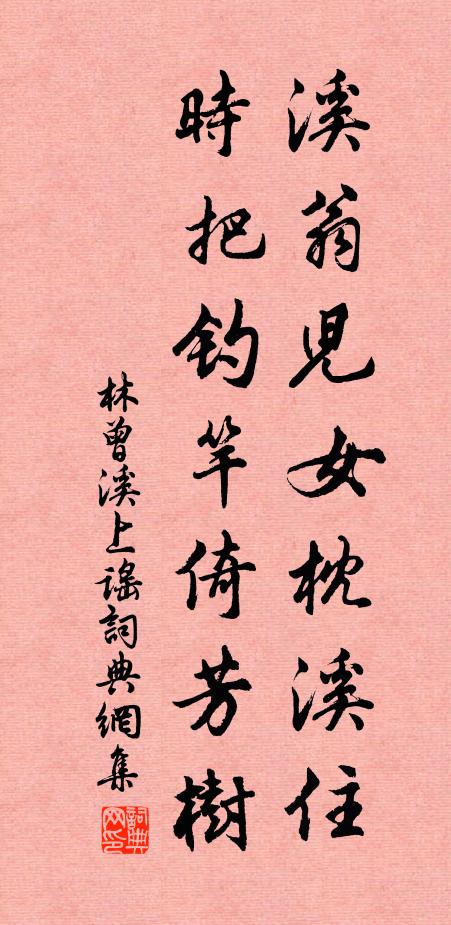 溪翁兒女枕溪住
時把釣竿倚芳樹
林曾溪上謠詞典網集
詞典网印